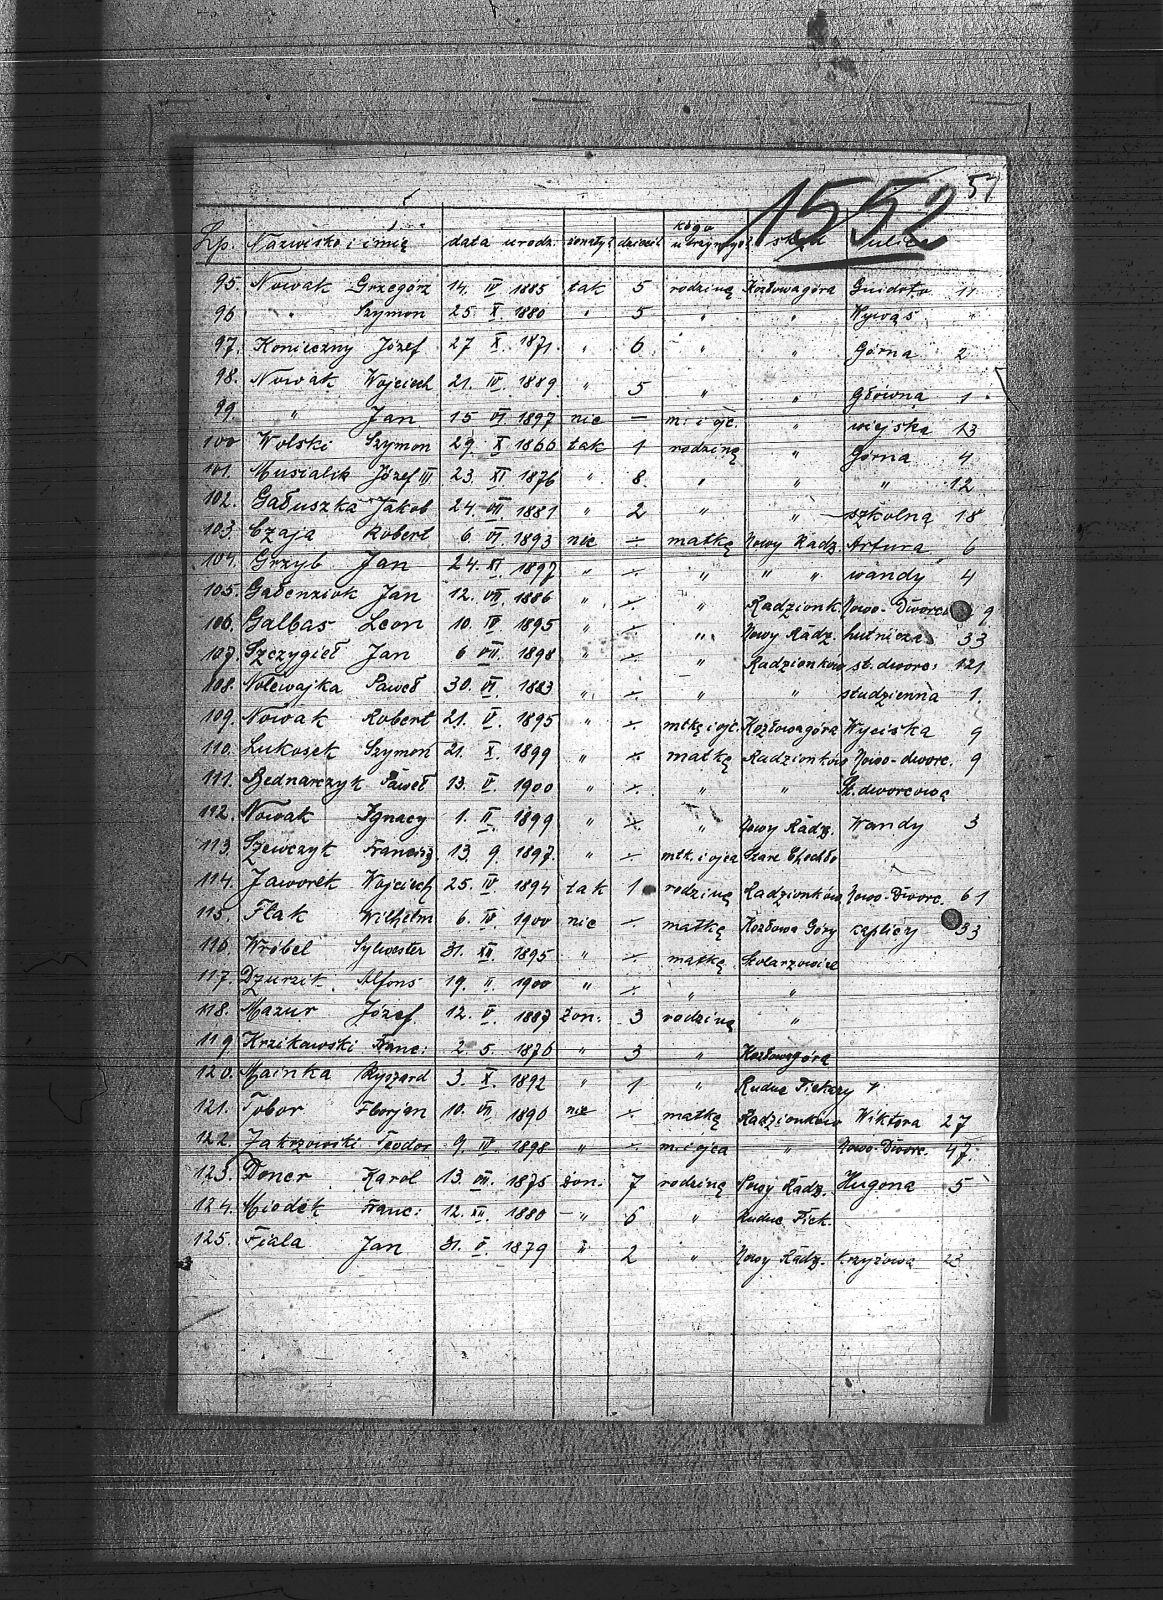 57
1552
Lp. Nazwisko i imię data urodz. żonaty dzieci kogo utrzymyw. skąd ulica
95. Nowak Grzegórz 14. IV 1885 tak 5 rodzinę Kozłowagóra Guidota 11
96 " Szymon 25. X. 1880 " 5 " " Wywąs "
97. Konieczny Józef 27 X. 1871. " 6 " " Górna 2
98. Nowak Wojciech 21. IV. 1889. " 5 " " główna 1
99. " Jan 15 VI. 1897 nie — m. i ojc. " wiejska 13
100 Wolski Szymon 29. X. 1866 tak 1 rodzinę " Górna 4
101. Musialik Józef III 23. XI 1876 " 8. " " " 12
102. Gałuszka Jakob 24. VII 1881 " 2 " " szkolna 18
103. Czaja Robert 6 VI. 1893 nie ÷ matkę Nowy Radz. Artura 6
104. Grzyb Jan 24. XI 1897 " ÷ " " " wandy 4
105. Gałenziok Jan 12. VII. 1886 " ÷ " Radzionk. Nowo-Dworc. 9
106. Galbas Leon 10. IV 1895 " ÷ " Nowy Radz. hutnicza 33
107. Szczygieł Jan 6 VIII. 1898 " ÷ " Radzionków st. dworc: 121
108. Nolewajka Paweł 30. VI. 1883 " ÷ " " studzienna 1.
109. Nowak Robert 21. V. 1895 " ÷ mtkę i ojc. Kozłowagóra Wyciska 9
110. Lukosek Szymon 21. X. 1899 " ÷ matkę Radzionków Nowo-dworc. 9
111. Bednarczyk Paweł 13. V. 1900 " ÷ " " St. dworcową
112. Nowak Ignacy 1. II. 1899 " ÷ " Nowy Radz. Wandy 3
113. Szewczyk Francisz. 13. 9. 1897. " ÷ mtk. i ojca Stare Chechło
114. Jaworek Wojciech 25. IV 1894 tak 1 rodzinę Radzionków Nowo-Dworc. 61
115. Flak Wilhelm 6. IV 1900 nie ÷ matkę Kozłowa Góry kaplicy 33
116. Wróbel Sylwester 31. XII. 1895 " ÷ matkę Stolarzowice
117. Dzurzik Alfons 19. II. 1900 " ÷ " "
118. Mazur Józef 12. V. 1887 żon. 3 rodzinę "
119. Krzikawski Franc: 2. 5. 1876 " 3 " Kozłowagóra
120. Mainka Ryszard 3. X. 1892 " 1 " Rudne Piekary "
121. Tobor Florjan 10. VI. 1890 nie ÷ matkę Radzionków Wiktora 27
122. Zakrzowski Teodor 9. IV 1898 " ÷ m. i ojca " Nowo-Dworc. 47.
123. Doner Karol 13. VII. 1875 żon. 7 rodzinę Nowy Radz. Hugona 5
124. Miodek Franc: 12. XII. 1880 " 6 " Rudne Piek.
125. Fiala Jan 31. V. 1879 " 2 " Nowy Radz. krzyżowa 23